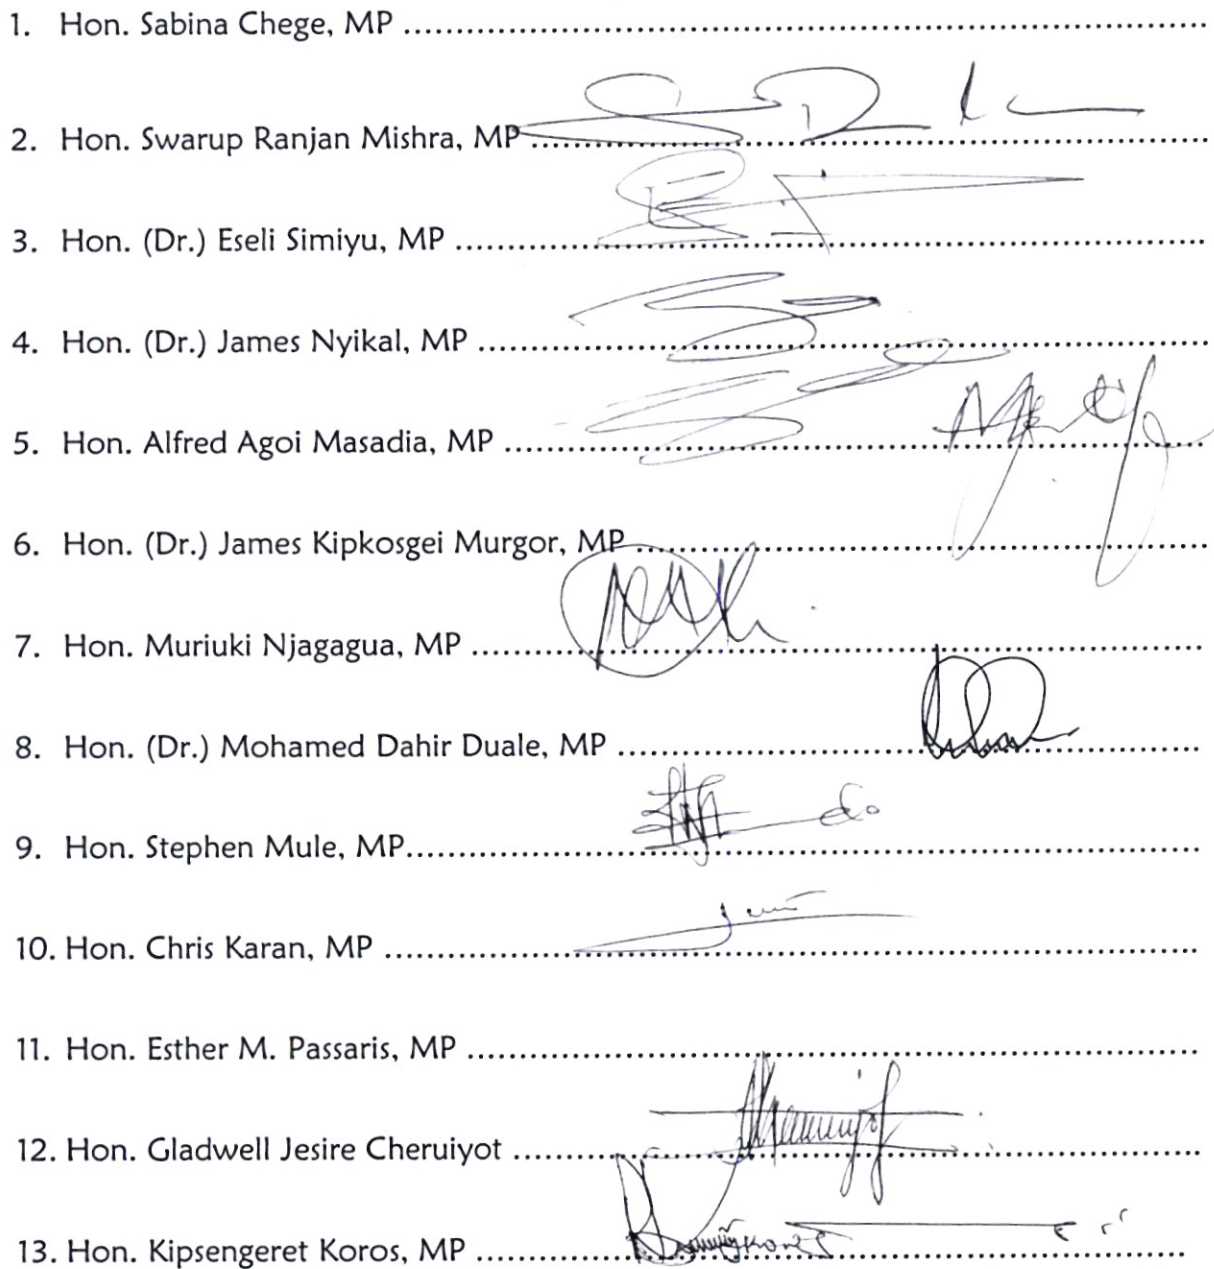 1. Hon. Sabina Chege, MP ..........................................................................
2. Hon. Swarup Ranjan Mishra, MP ..............................................................
3. Hon. (Dr.) Eseli Simiyu, MP .....................................................................
4. Hon. (Dr.) James Nyikal, MP ...................................................................
5. Hon. Alfred Agoi Masadia, MP .................................................................
6. Hon. (Dr.) James Kipkosgei Murgor, MP .....................................................
7. Hon. Muriuki Njagagua, MP ....................................................................
8. Hon. (Dr.) Mohamed Dahir Duale, MP ......................................................
9. Hon. Stephen Mule, MP..........................................................................
10. Hon. Chris Karan, MP ...........................................................................
11. Hon. Esther M. Passaris, MP ...................................................................
12. Hon. Gladwell Jesire Cheruiyot ...............................................................
13. Hon. Kipsengeret Koros, MP ..................................................................